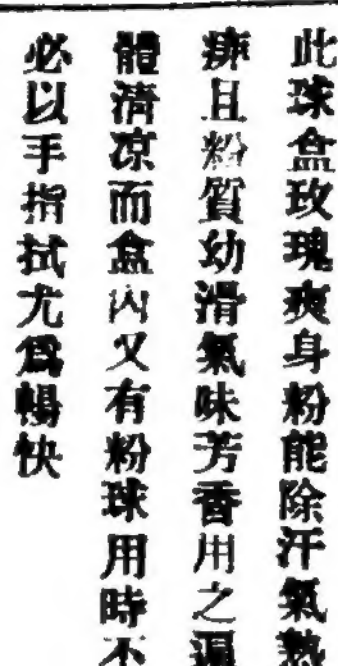 此球盒玫瑰爽身粉能除汗氣熱
痱且粉質幼滑氣味芳香用之遍
體清凉而盒內又有粉球用時不
必以手指拭尤爲暢快